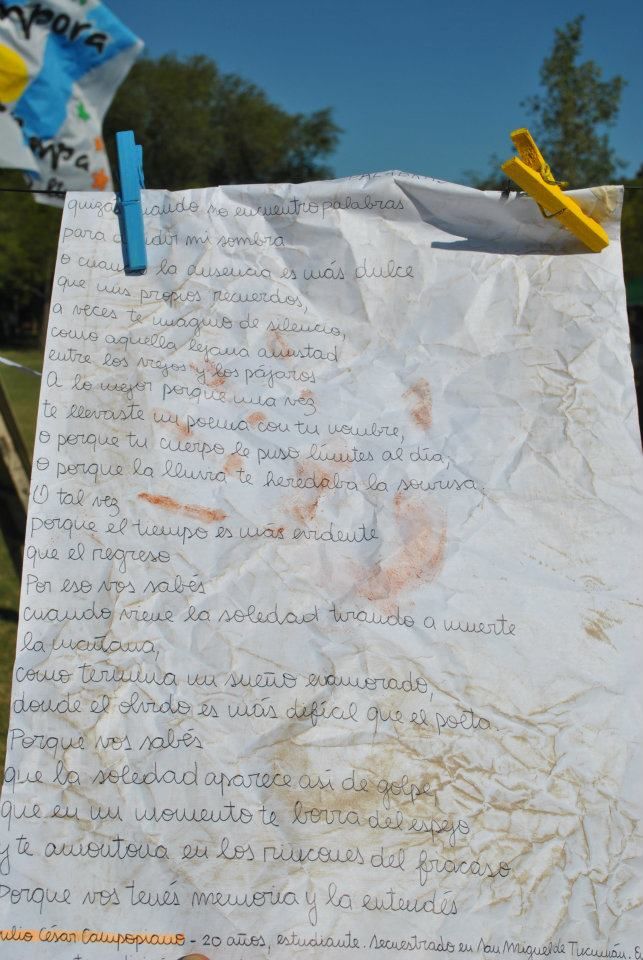 mpora
quizá cuando no encuentro palabras
para mi sombra
o cuando la ausencia es más dulce
que mis propios recuerdos,
a veces te imagino de silencio,
como aquella lejana amistad
entre los viejos y los pájaros
A lo mejor porque una vez
te llevaste un poema con tu nombre,
o porque tu cuerpo le puso límites al día,
o porque la lluvia te heredaba la sonrisa.
O tal vez
porque el tiempo es más evidente
que el regreso
Por eso vos sabés
cuando viene la soledad tirando a muerte
la mañana,
como termina un sueño enamorado,
donde el olvido es más difícil que el poeta.
Porque vos sabés
que la soledad aparece así de golpe,
que en un momento te borra del espejo
y te amontona en los rincones del fracaso
Porque vos tenés memoria y la entendés
ulio César Campopiano - 20 años, estudiante. Secuestrado en San Miguel de Tucumán. E